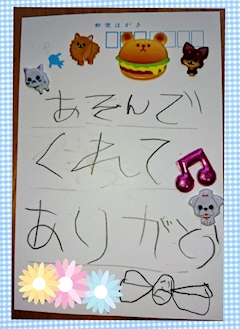 郵便はがき
あそんで
くれて
ありがとう